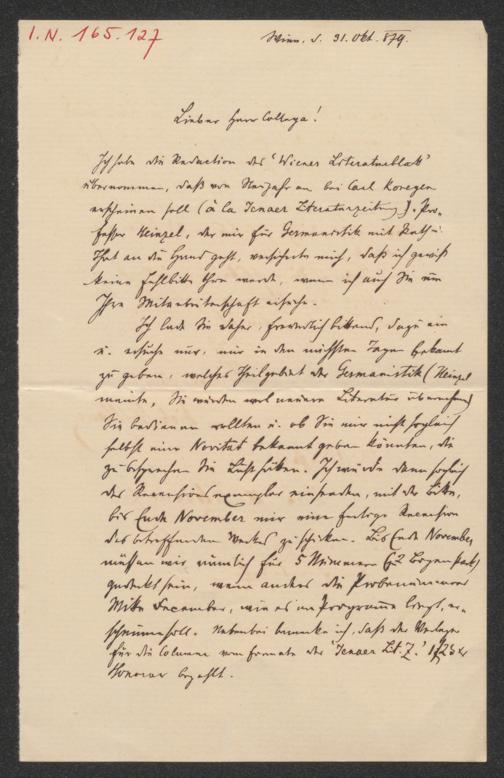 I.N. 165.127
Wien. d. 31. Okt. 879.
Lieber Herr Collega!
Ich habe die Redaction des 'Wiener Literaturblatt'
übernommen, daß von Neujahr an bei Carl Konegen
erscheinen soll (à la Jenaer Literaturzeitung). Pro-
fessor Heinzel, der mir für Germanistik mit Rath u.
That an die Hand geht, versicherte mich, daß ich gewiß
keine Fehlbitte thun werde, wenn ich auch Sie um
Ihre Mitarbeiterschaft ersuche.
Ich lade Sie daher, freundlich bittend, dazu ein
u. ersuche nur, mir in den nächsten Tagen bekannt
zu geben, welches Theilgebiet der Germanistik (Heinzel
meinte, Sie würden wol neuere Literatur übernehmen)
Sie bedienen wollten u. ob Sie mir nicht sogleich
selbst eine Novität bekannt geben könnten, die
zu besprechen Sie Lust hätten. Ich würde dann sogleich
das Recensionsexemplar einsenden, mit der Bitte,
bis Ende November mir eine fertige Recension
des betreffenden Werkes zu schicken. Bis Ende November
müssen wir nämlich für 5 Nummern (2 Bogen stark)
gedeckt sein, wenn anders die Probenummer
Mitte December, wie es im Programme liegt, er-
scheinen soll. Nebenbei bemerke ich, daß der Verleger
für die Columne vom Formate der 'Jenaer Lit. Z.'
Honorar bezahlt.